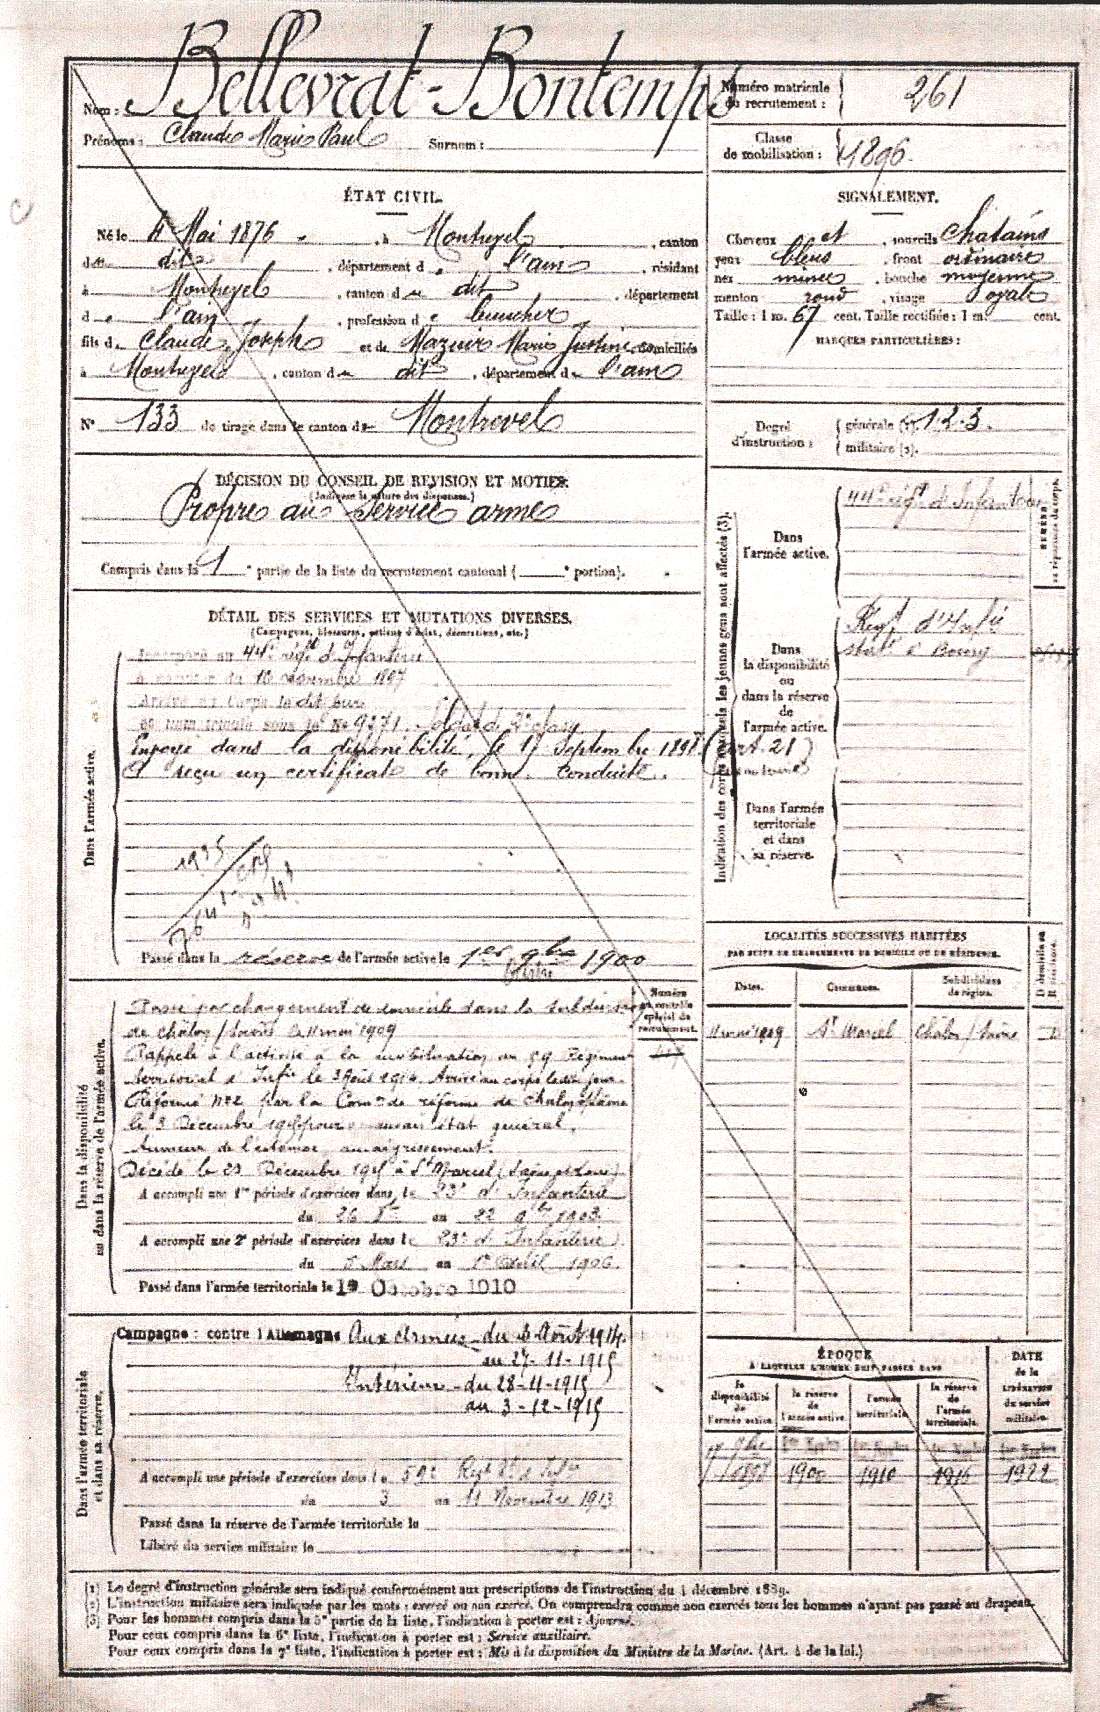 Nom : Bellevrat-Bontemps
Prénoms : Claude Marie Paul Surnom :
Numéro matricule du recrutement : 261
Classe de mobilisation : 1896.
ÉTAT CIVIL.
Né le 4 Mai 1876 - , à Montrevel , canton
d dit , département d l'ain , résidant
à Montrevel , canton d u dit , département
d e l'ain , profession d e
fils d e Claude Joseph et de Marie Justine domiciliés
à Montrevel , canton d u dit , département d e l'ain
N° 133 de tirage dans le canton de Montrevel
SIGNALEMENT.
Cheveux et , sourcils chatains
yeux bleus , front ordinaire
nez mince , bouche moyenne
menton rond , visage ovale
Taille : 1 m. 67 cent. Taille rectifiée : 1 m. cent.
MARQUES PARTICULIÈRES :
Degré d'instruction :
générale (1). 1.2.3.
militaire (2).
DÉCISION DU CONSEIL DE REVISION ET MOTIFS.
(Indiquer la nature des dispenses.)
Propre au service armé
Compris dans la 1 e partie de la liste du recrutement cantonal ( e portion).
DÉTAIL DES SERVICES ET MUTATIONS DIVERSES.
(Campagnes, blessures, actions d'éclat, décorations, etc.)
Dans l'armée active.
Incorporé au 44e régt d'Infanterie
à compter du 16 novembre 1897
Arrivé au Corps le dit jour
et immatriculé sous le No 9271. Soldat de 2e classe
Envoyé dans la disponibilité, le 17 Septembre 1898 (art. 21)
A reçu un certificat de bonne conduite.
Passé dans la réserve de l'armée active le 1er 9bre 1900
Indication des corps auxquels les jeunes gens sont affectés (3).
Dans l'armée active.
44e régt d'Infanterie
NUMÉRO au répertoire du corps.
Dans la disponibilité ou dans la réserve de l'armée active.
Régt d'Infie
statre à Bourg
Dans l'armée territoriale et dans sa réserve.
LOCALITÉS SUCCESSIVES HABITÉES
PAR SUITE DE CHANGEMENTS DE DOMICILE OU DE RÉSIDENCE.
Dates. Communes. Subdivisions de région. D domicile ou R résidence.
11 mai 1909 St Marcel Chalon / Saône D
Dans la disponibilité ou dans la réserve de l'armée active.
Numéro au contrôle spécial du recrutement.
Passé par changement de domicile dans la subdivision
de Chalon / Saône le 11 mai 1909
Rappelé à l'activité à la mobilisation au 59 Régiment
territorial d'Infie le 3 Août 1914. Arrivé au corps le dit jour.
Réformé No 2 par la Comon de réforme de Chalon s/ Saône
le 3 Décembre 1915 pour mauvais état général,
tumeur de l'estomac, amaigrissement.
Décédé le 29 Décembre 1915 à St Marcel (Saône et Loire)
A accompli une 1re période d'exercices dans le 23e d'Infanterie
du 26 8bre au 22 9bre 1903
A accompli une 2e période d'exercices dans le 23e d'Infanterie
du 5 Mars au 1er Avril 1906.
Passé dans l'armée territoriale le 1er Octobre 1910
Dans l'armée territoriale et dans sa réserve.
Campagne : contre l'Allemagne Aux Armées - du 3 Août 1914.
au 27-11-1915
Intérieur - du 28-11-1915
au 3-12-1915
A accompli une période d'exercices dans le 59e Régt d'Infie
du 3 au 11 Novembre 1913
Passé dans la réserve de l'armée territoriale le
Libéré du service militaire le
ÉPOQUE
À LAQUELLE L'HOMME DOIT PASSER DANS
la disponibilité de l'armée active. la réserve de l'armée active. l'armée territoriale. la réserve de l'armée territoriale.
DATE de la LIBÉRATION du service militaire.
17 7bre 1898 1900 1910 1916 1922
(1) Le degré d'instruction générale sera indiqué conformément aux prescriptions de l'instruction du 4 décembre 1889.
(2) L'instruction militaire sera indiquée par les mots : exercé ou non exercé. On comprendra comme non exercés tous les hommes n'ayant pas passé au drapeau.
(3) Pour les hommes compris dans la 5e partie de la liste, l'indication à porter est : Ajourné.
Pour ceux compris dans la 6e liste, l'indication à porter est : Service auxiliaire.
Pour ceux compris dans la 7e liste, l'indication à porter est : Mis à la disposition du Ministre de la Marine. (Art. 4 de la loi.)